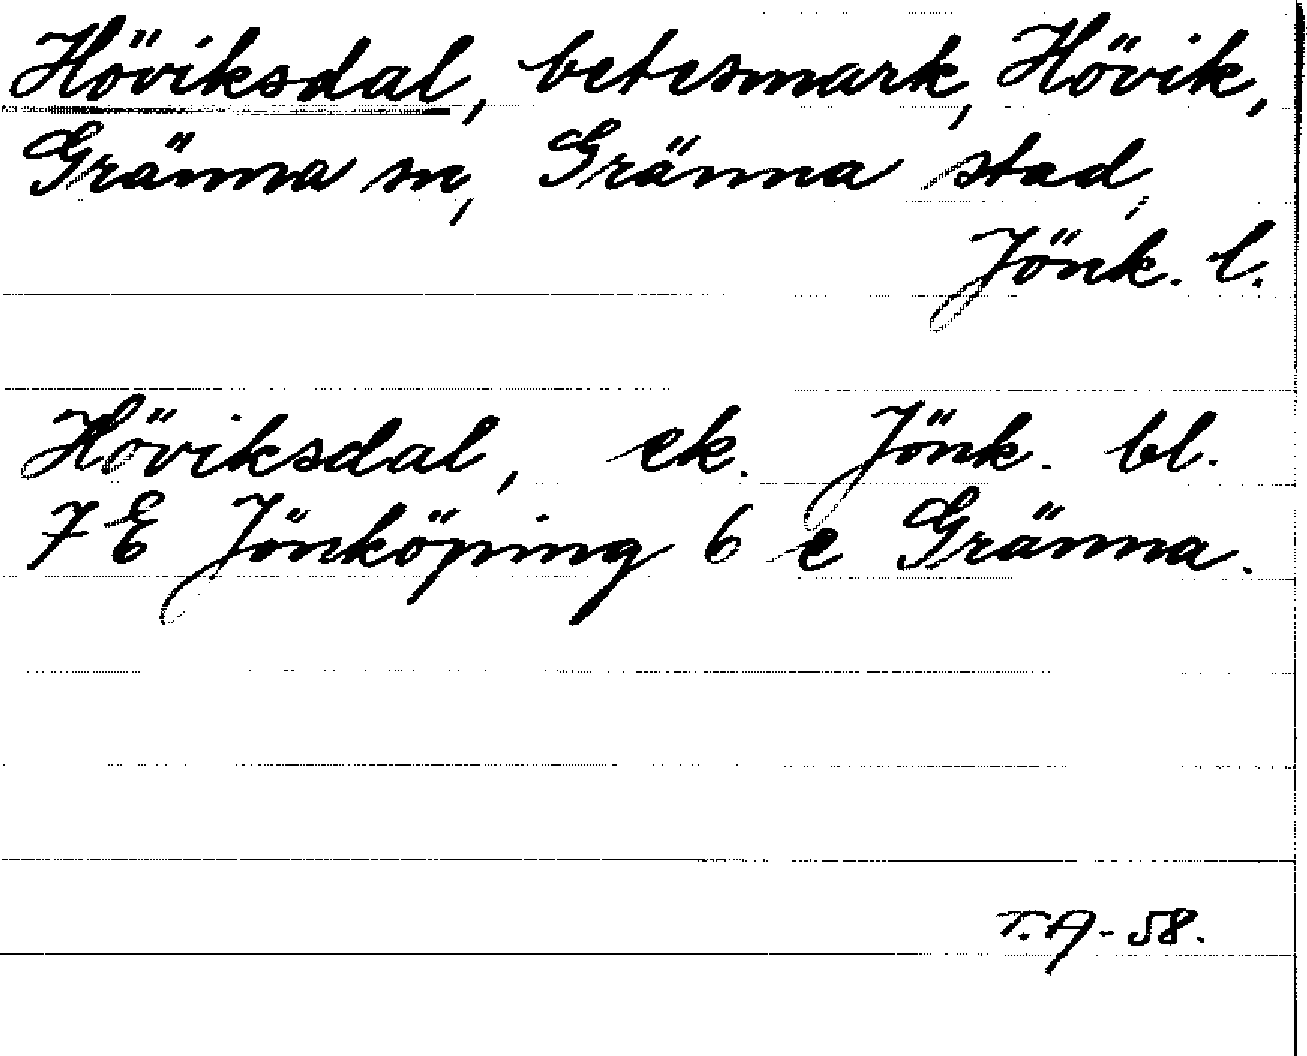 Höviksdal, betesmark, Hövik,
Gränna sn, Gränna stad,
Jönk. l.
Höviksdal, ek. Jönk. bl.
7 E Jönköping 6 e Gränna.
T.A-58.